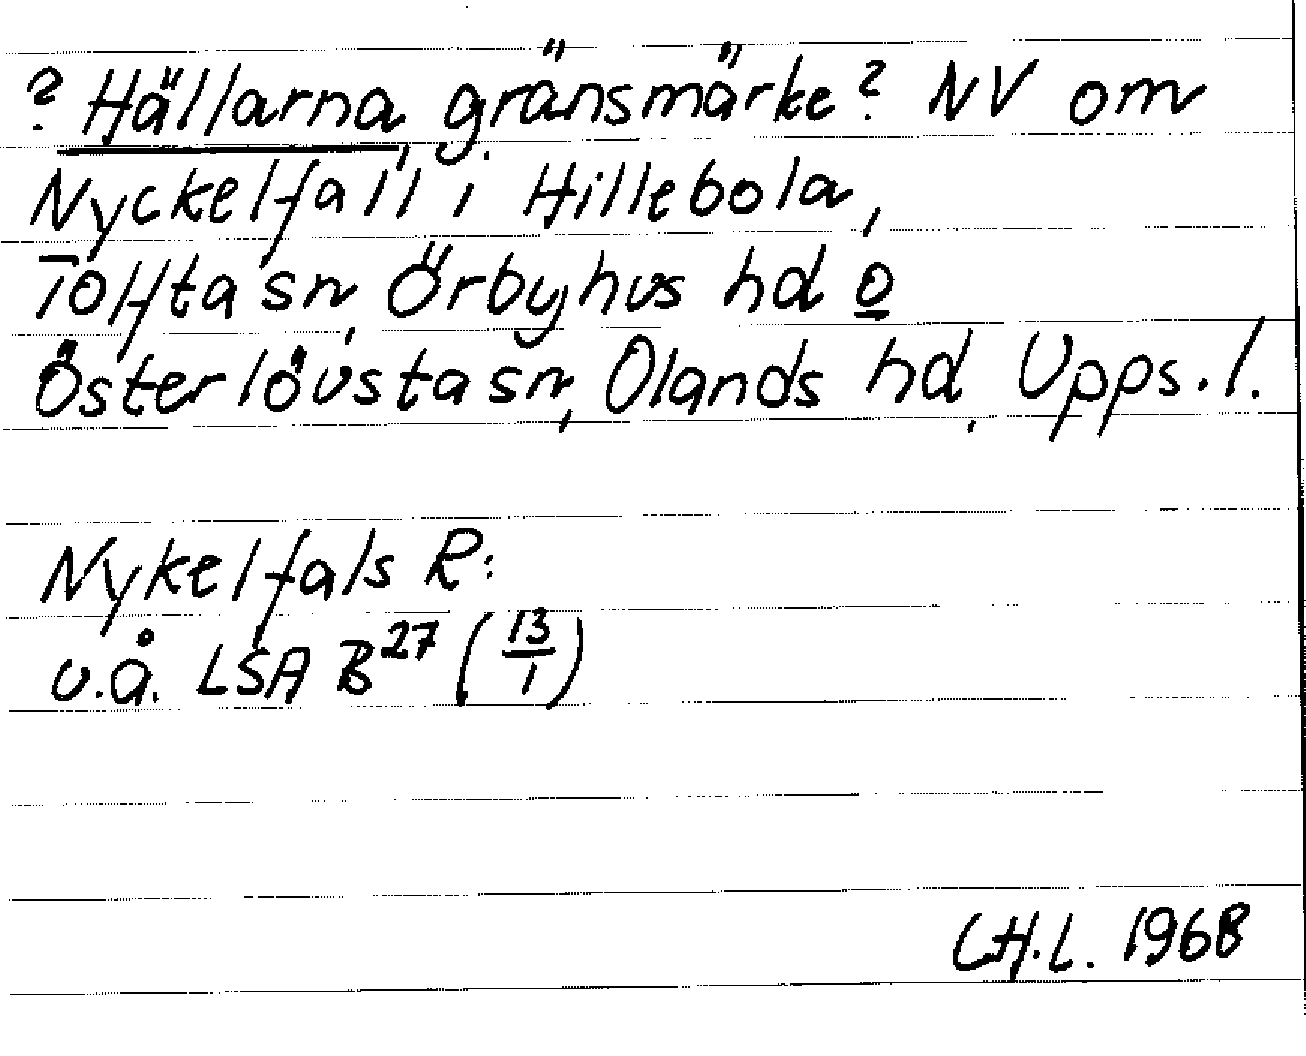 ? Hällarna, gränsmärke? NV om
Nyckelfall i Hillebola,
Tolfta sn, Örbyhus hd o
Österlövsta sn, Olands hd, Upps. l.
Nykelfals R:
u.å. LSA B27 (13/1)
C.H.L. 1968